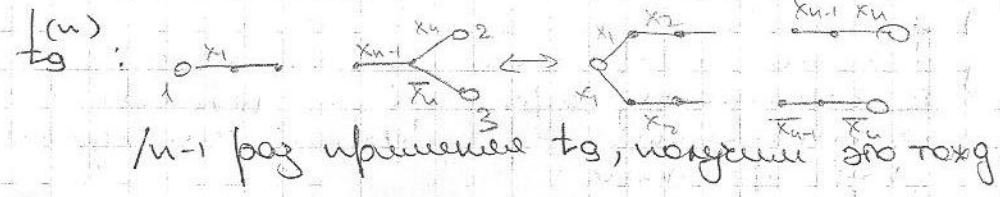 t₉⁽ⁿ⁾ : 1 x₁ xₙ₋₁ xₙ 2 x̄ₙ 3 ↔ x₁ x₂ xₙ₋₁ xₙ
x₁ x₂ x̄ₙ₋₁ x̄ₙ
/n-1 раз применяя t₉, получим это тожд